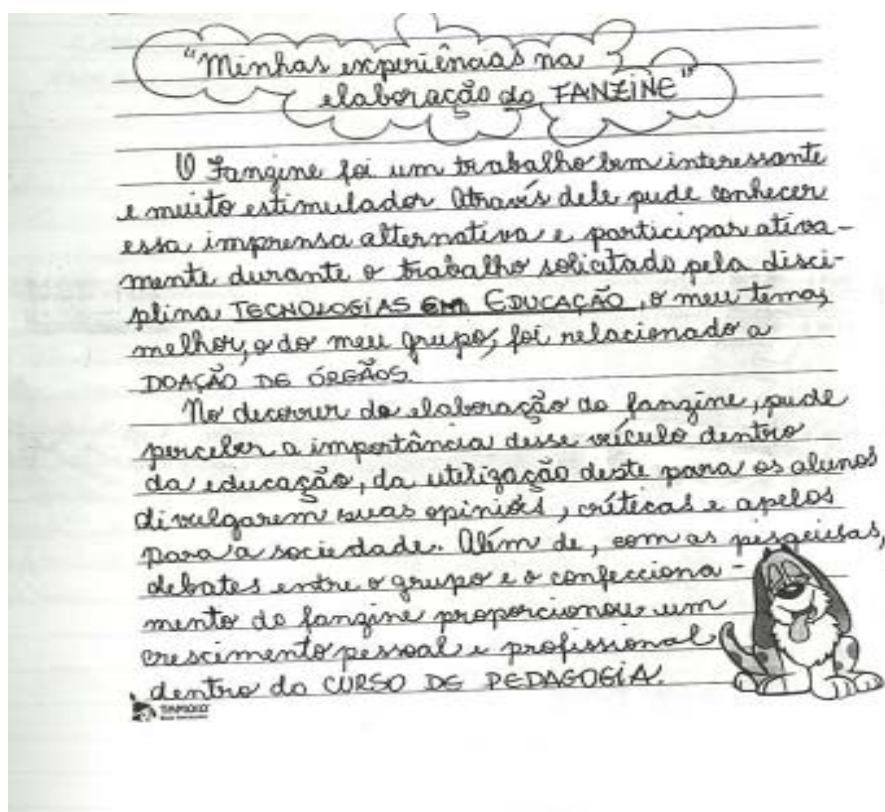 "Minhas experiências na
elaboração do FANZINE"
O Fanzine foi um trabalho bem interessante
e muito estimulador. Através dele pude conhecer
essa imprensa alternativa e participar ativa-
mente durante o trabalho solicitado pela disci-
plina TECNOLOGIAS EM EDUCAÇÃO, o meu tema,
melhor, o do meu grupo, foi relacionado a
DOAÇÃO DE ÓRGÃOS.
No decorrer da elaboração do fanzine, pude
perceber a importância desse veículo dentro
da educação, da utilização deste para os alunos
divulgarem suas opiniões, críticas e apelos
para a sociedade. Além de, com as pesquisas,
debates entre o grupo e o confecciona-
mento do fanzine proporcionou um
crescimento pessoal e profissional
dentro do CURSO DE PEDAGOGIA.